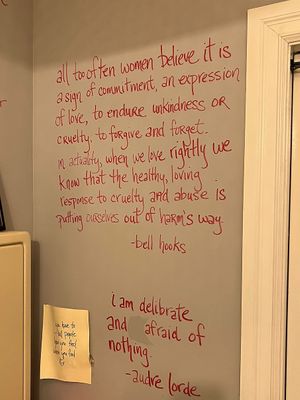 all too often women believe it is
a sign of commitment, an expression
of love, to endure unkindness or
cruelty, to forgive and forget.
in actuality, when we love rightly we
know that the healthy, loving
response to cruelty and abuse is
putting ourselves out of harm's way
-bell hooks
i am delibrate
and afraid of
nothing.
-audre lorde
you have to
tell people
how you feel
when you feel
it